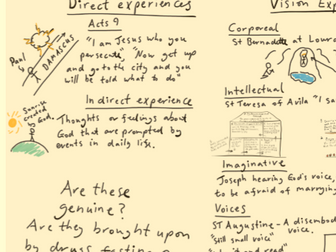 Direct experiences
Acts 9
"I am Jesus who you
persecute", "Now get up
and go to the city and you
will be told what to do"
Paul
DAMASCUS
Indirect experience
Sunrise
created by
God.
Thoughts or feelings about
God that are prompted by
events in daily life.
Are these
genuine?
Are they brought upon
by drugs, fasting
Vision Exp
Corporeal
St Bernadette at Lourd
Intellectual
St Teresa of Avila "I sa
Imaginative
Joseph hearing God's voice,
to be afraid of marrying
Voices
ST Augustine - A disembod
"still small voice" voice.
"and read"